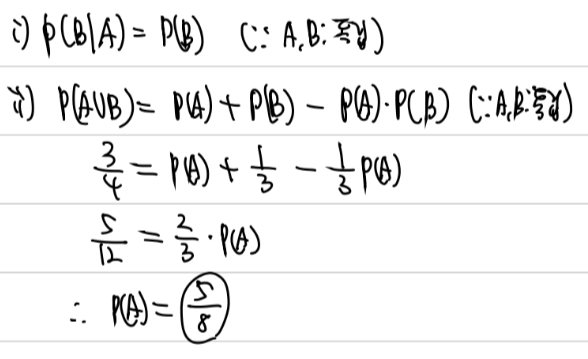 i) P(B|A) = P(B) (∵ A, B: 독립)
ii) P(A∪B) = P(A) + P(B) - P(A)·P(B) (∵ A, B: 독립)
3/4 = P(A) + 1/3 - 1/3 P(A)
5/12 = 2/3 · P(A)
∴ P(A) = 5/8